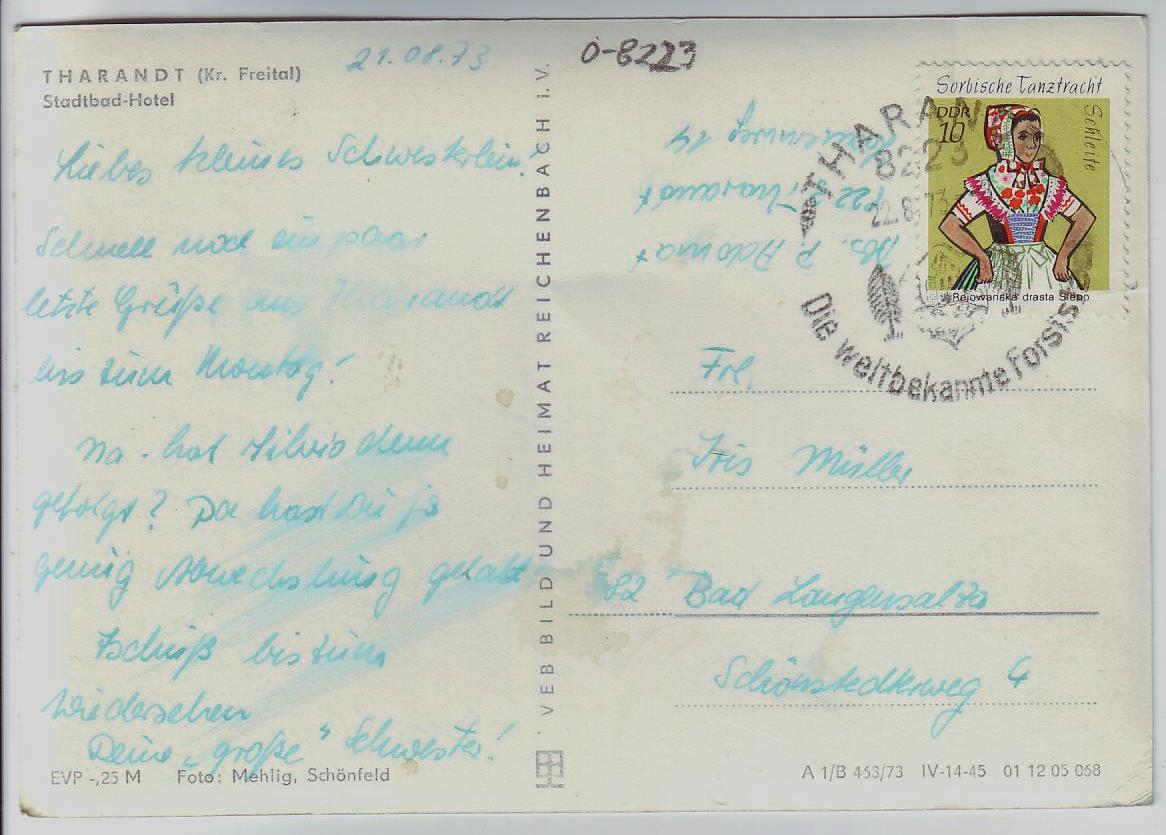 THARANDT (Kr. Freital)
Stadtbad-Hotel
21.08.73
Liebes kleines Schwesterlein!
Schnell noch ein paar
letzte Grüße aus Tharandt
bis zum Montag!
Na - hat Silvio denn
gefolgt? Da hast Du ja
genug Abwechslung gehabt
Tschüß bis zum
Wiedersehen
Deine „große" Schwester!
EVP -,25 M Foto: Mehlig, Schönfeld
VEB BILD UND HEIMAT REICHENBACH i. V.
O-8223
Abs. P.
Tharandt
14
Sorbische Tanztracht
Schleife
DDR
10
Rejowanska drasta Slepo
THARAN
8223
22.8.73
Die weltbekannte Forsts
Frl.
Iris Müller
582 Bad Langensalza
Schönstedterweg 4
A 1/B 463/73 IV-14-45 01 12 05 068